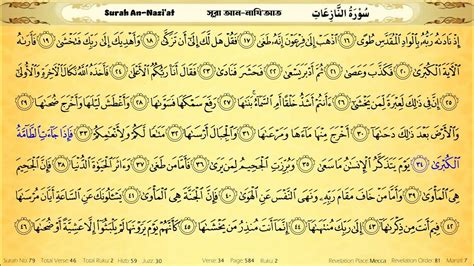 Surah An-Nazi'at সূরা আন-নাযিআত سُوْرَةُ النَّازِعَاتِ
إِذْ نَادَىٰهُ رَبُّهُۥ بِٱلْوَادِ ٱلْمُقَدَّسِ طُوًى ١٦ ٱذْهَبْ إِلَىٰ فِرْعَوْنَ إِنَّهُۥ طَغَىٰ ١٧ فَقُلْ هَل لَّكَ إِلَىٰٓ أَن تَزَكَّىٰ ١٨ وَأَهْدِيَكَ إِلَىٰ رَبِّكَ فَتَخْشَىٰ ١٩ فَأَرَىٰهُ
ٱلْءَايَةَ ٱلْكُبْرَىٰ ٢٠ فَكَذَّبَ وَعَصَىٰ ٢١ ثُمَّ أَدْبَرَ يَسْعَىٰ ٢٢ فَحَشَرَ فَنَادَىٰ ٢٣ فَقَالَ أَنَا۠ رَبُّكُمُ ٱلْأَعْلَىٰ ٢٤ فَأَخَذَهُ ٱللَّهُ نَكَالَ ٱلْءَاخِرَةِ وَٱلْأُولَىٰٓ
٢٥ إِنَّ فِى ذَٰلِكَ لَعِبْرَةً لِّمَن يَخْشَىٰٓ ٢٦ ءَأَنتُمْ أَشَدُّ خَلْقًا أَمِ ٱلسَّمَآءُ ۚ بَنَىٰهَا ٢٧ رَفَعَ سَمْكَهَا فَسَوَّىٰهَا ٢٨ وَأَغْطَشَ لَيْلَهَا وَأَخْرَجَ ضُحَىٰهَا ٢٩
وَٱلْأَرْضَ بَعْدَ ذَٰلِكَ دَحَىٰهَآ ٣٠ أَخْرَجَ مِنْهَا مَآءَهَا وَمَرْعَىٰهَا ٣١ وَٱلْجِبَالَ أَرْسَىٰهَا ٣٢ مَتَٰعًا لَّكُمْ وَلِأَنْعَٰمِكُمْ ٣٣ فَإِذَا جَآءَتِ ٱلطَّآمَّةُ
ٱلْكُبْرَىٰ ٣٤ يَوْمَ يَتَذَكَّرُ ٱلْإِنسَٰنُ مَا سَعَىٰ ٣٥ وَبُرِّزَتِ ٱلْجَحِيمُ لِمَن يَرَىٰ ٣٦ فَأَمَّا مَن طَغَىٰ ٣٧ وَءَاثَرَ ٱلْحَيَوٰةَ ٱلدُّنْيَا ٣٨ فَإِنَّ ٱلْجَحِيمَ
هِىَ ٱلْمَأْوَىٰ ٣٩ وَأَمَّا مَنْ خَافَ مَقَامَ رَبِّهِۦ وَنَهَى ٱلنَّفْسَ عَنِ ٱلْهَوَىٰ ٤٠ فَإِنَّ ٱلْجَنَّةَ هِىَ ٱلْمَأْوَىٰ ٤١ يَسْـَٔلُونَكَ عَنِ ٱلسَّاعَةِ أَيَّانَ مُرْسَىٰهَا
٤٢ فِيمَ أَنتَ مِن ذِكْرَىٰهَآ ٤٣ إِلَىٰ رَبِّكَ مُنتَهَىٰهَآ ٤٤ إِنَّمَآ أَنتَ مُنذِرُ مَن يَخْشَىٰهَا ٤٥ كَأَنَّهُمْ يَوْمَ يَرَوْنَهَا لَمْ يَلْبَثُوٓا۟ إِلَّا عَشِيَّةً أَوْ ضُحَىٰهَا ٤٦
Surah No:79 Total Verse:46 Total Ruku:2 Hizb:59 Juzz:30 Verse:34 Page:584 Ruku:2 Revelation Place:Mecca Revelation Order:81 Manzil:7